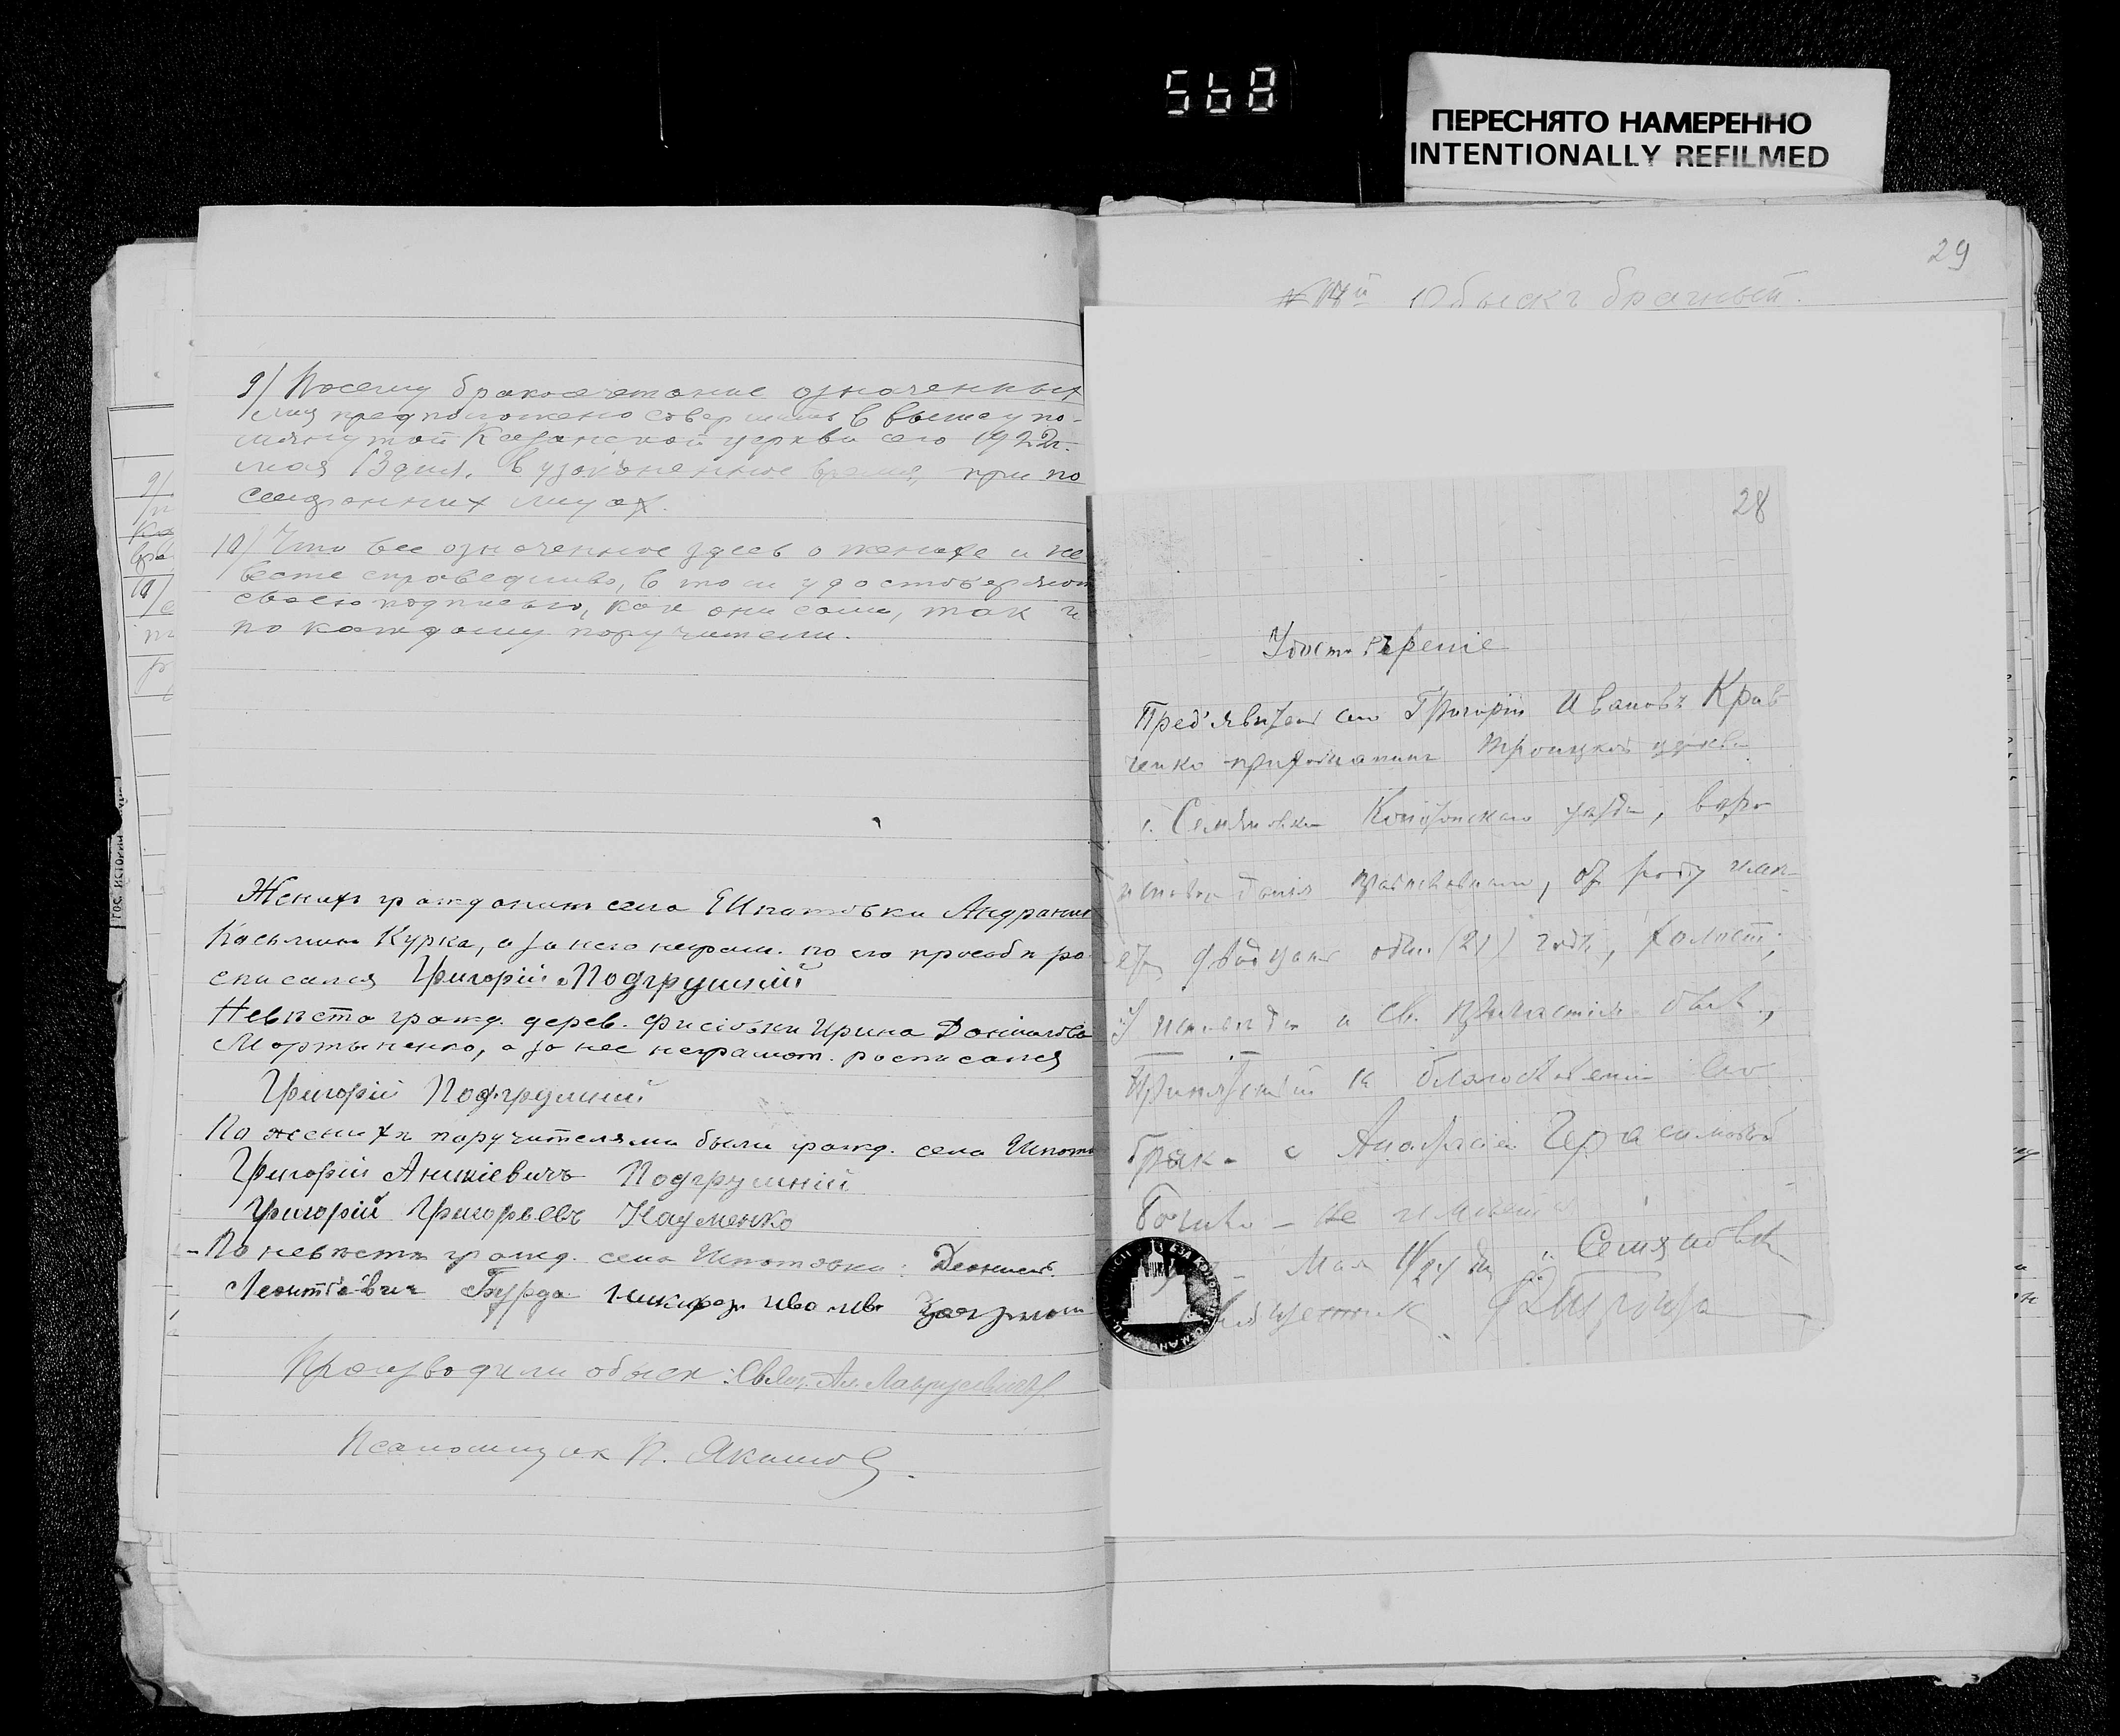 568
ПЕРЕСНЯТО НАМЕРЕННО
INTENTIONALLY REFILMED
9/ Посему бракосочетание означенных
лиц предположено совершить в вышеупо-
мянутой Казанской церкви сего 1922 г.
мая 13 дня, в узаконенное время, при по
сторонних лицах.
10/ Что все означенное здесь о женихе и не
весте справедливо, в том и удостоверяют
своею подписью, как они сами, так и
по каждому поручители.
Жених гражданин села Ипатовки
Курка, а за него неграм. по его просьбе ра
списался Григорій Подгрушній
Невеста гражд. дерев. Ирина
Мартыненко, а за нее неграмот. расписался
Григорій Подгрушній
По женихе поручителями были гражд. села Ипато
Григорій Аникіевичъ Подгрушній
Григорій Григорьевъ Науменко
По невесте гражд. села Ипатовки:
Леонтіевич Бурда
Производили обыск: Свящ. Ал.
Псаломщик П. Якимов
29
Обыскъ брачный.
28
Удостовѣреніе
Пред'явитель сего Григорій Ивановъ Крав-
ченко прихожанин Троицкой церкви
с. Семяновки Конотопскаго уѣзда, вѣро
исповѣданія православнаго, от роду имѣ-
ет двадцать один (21) годъ, холост,
У исповѣди и Св. причастія был,
Препятствій к благословенію его
брака с Анастасіей Герасимовой
не имеется
Мая 11/24 дня с. Семяновка
Священник